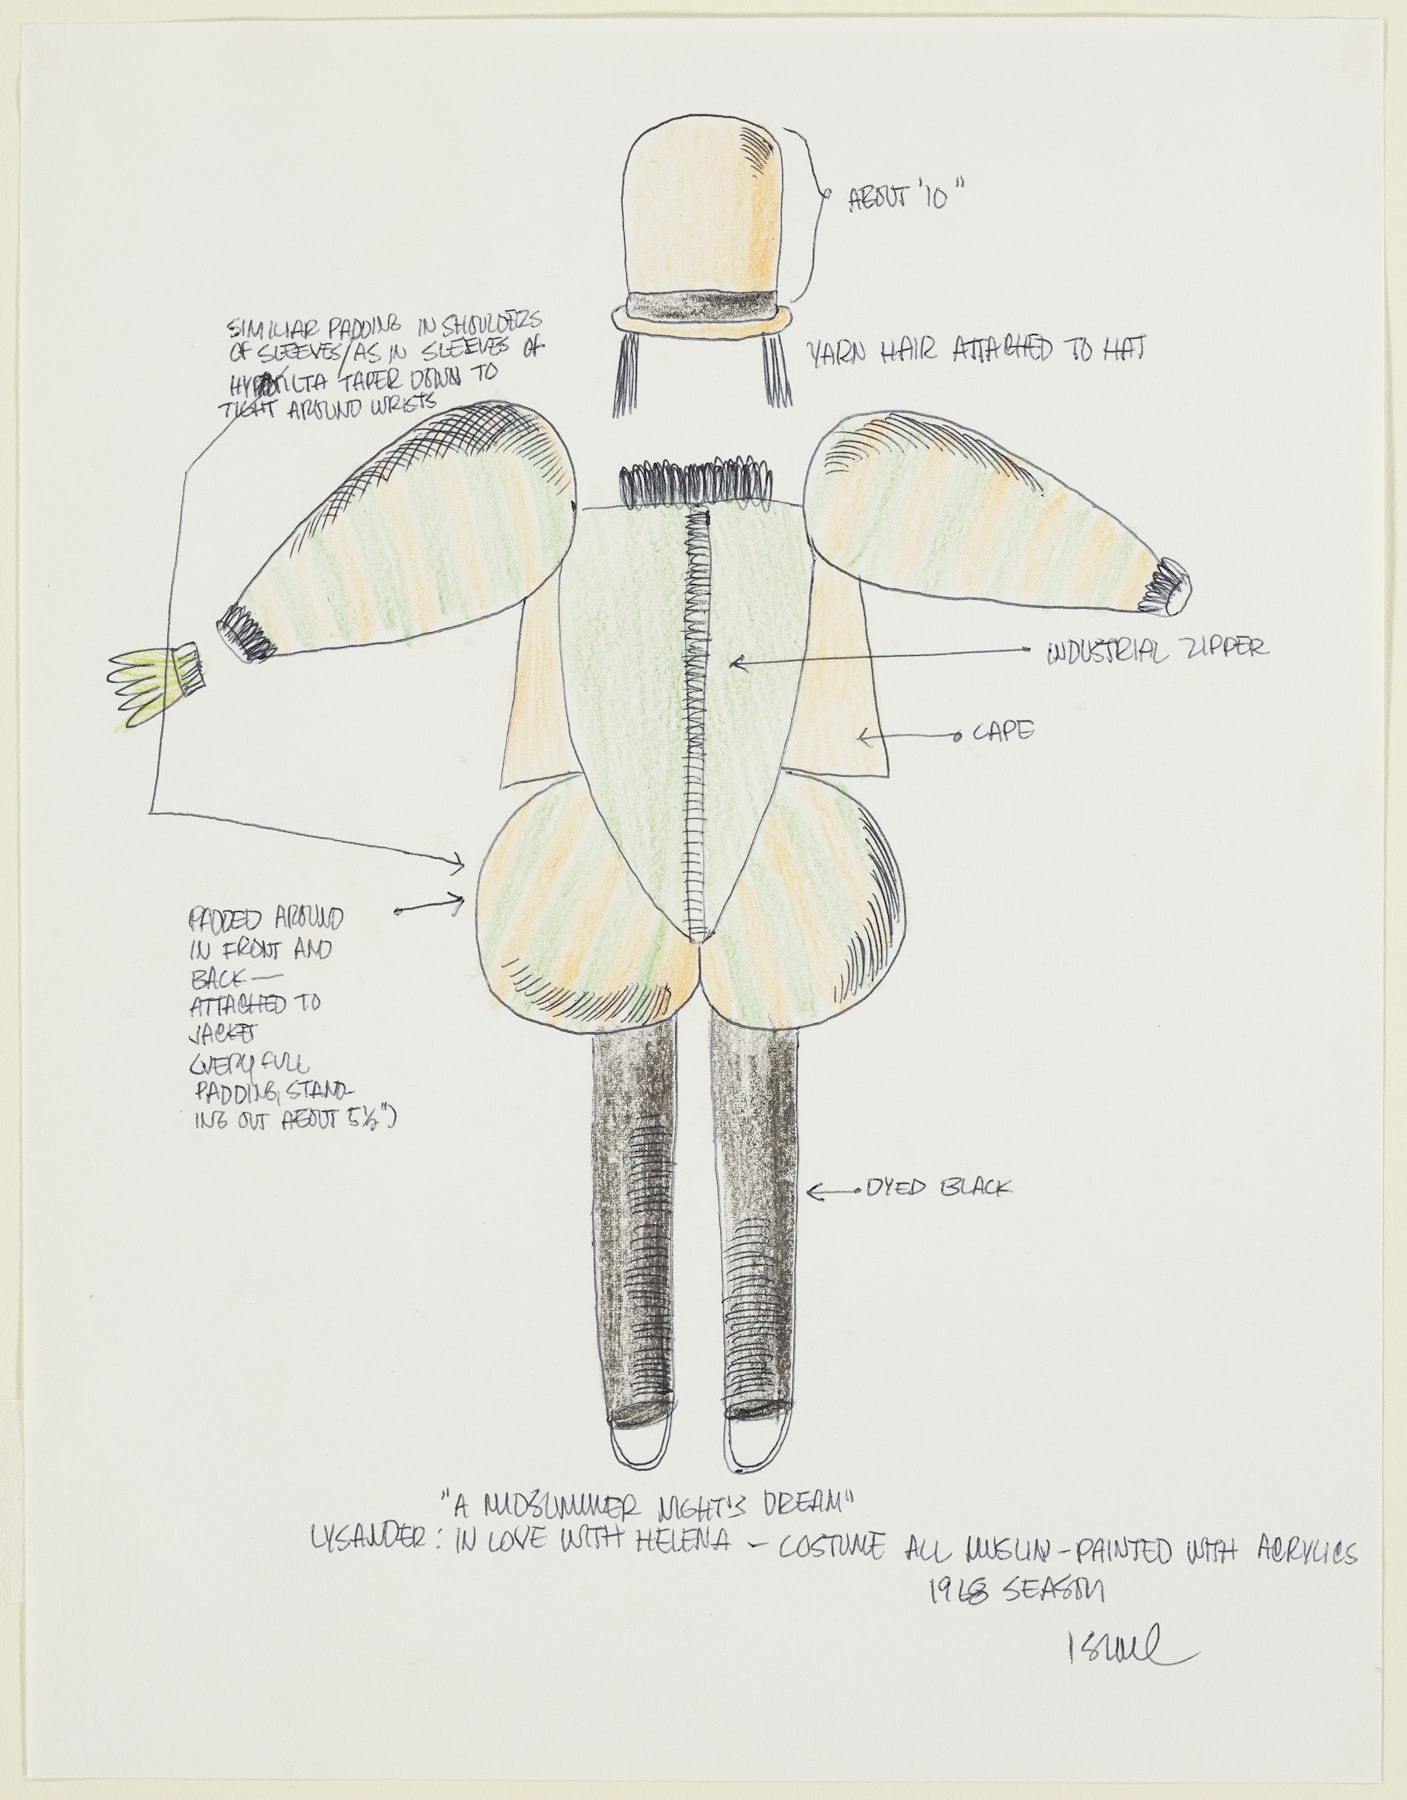 ABOUT '10"
SIMILIAR PADDING IN SHOULDERS
OF SLEEVES/AS IN SLEEVES OF
TAPER DOWN TO
TIGHT AROUND WRISTS
YARN HAIR ATTACHED TO HAT
INDUSTRIAL ZIPPER
CAPE
PADDED AROUND
IN FRONT AND
BACK—
ATTACHED TO
JACKET
(VERY FULL
PADDING, STAND-
ING OUT ABOUT 5½")
DYED BLACK
"A MIDSUMMER NIGHT'S DREAM"
LYSANDER: IN LOVE WITH HELENA – COSTUME ALL MUSLIN – PAINTED WITH ACRYLICS
1968 SEASON
Israel